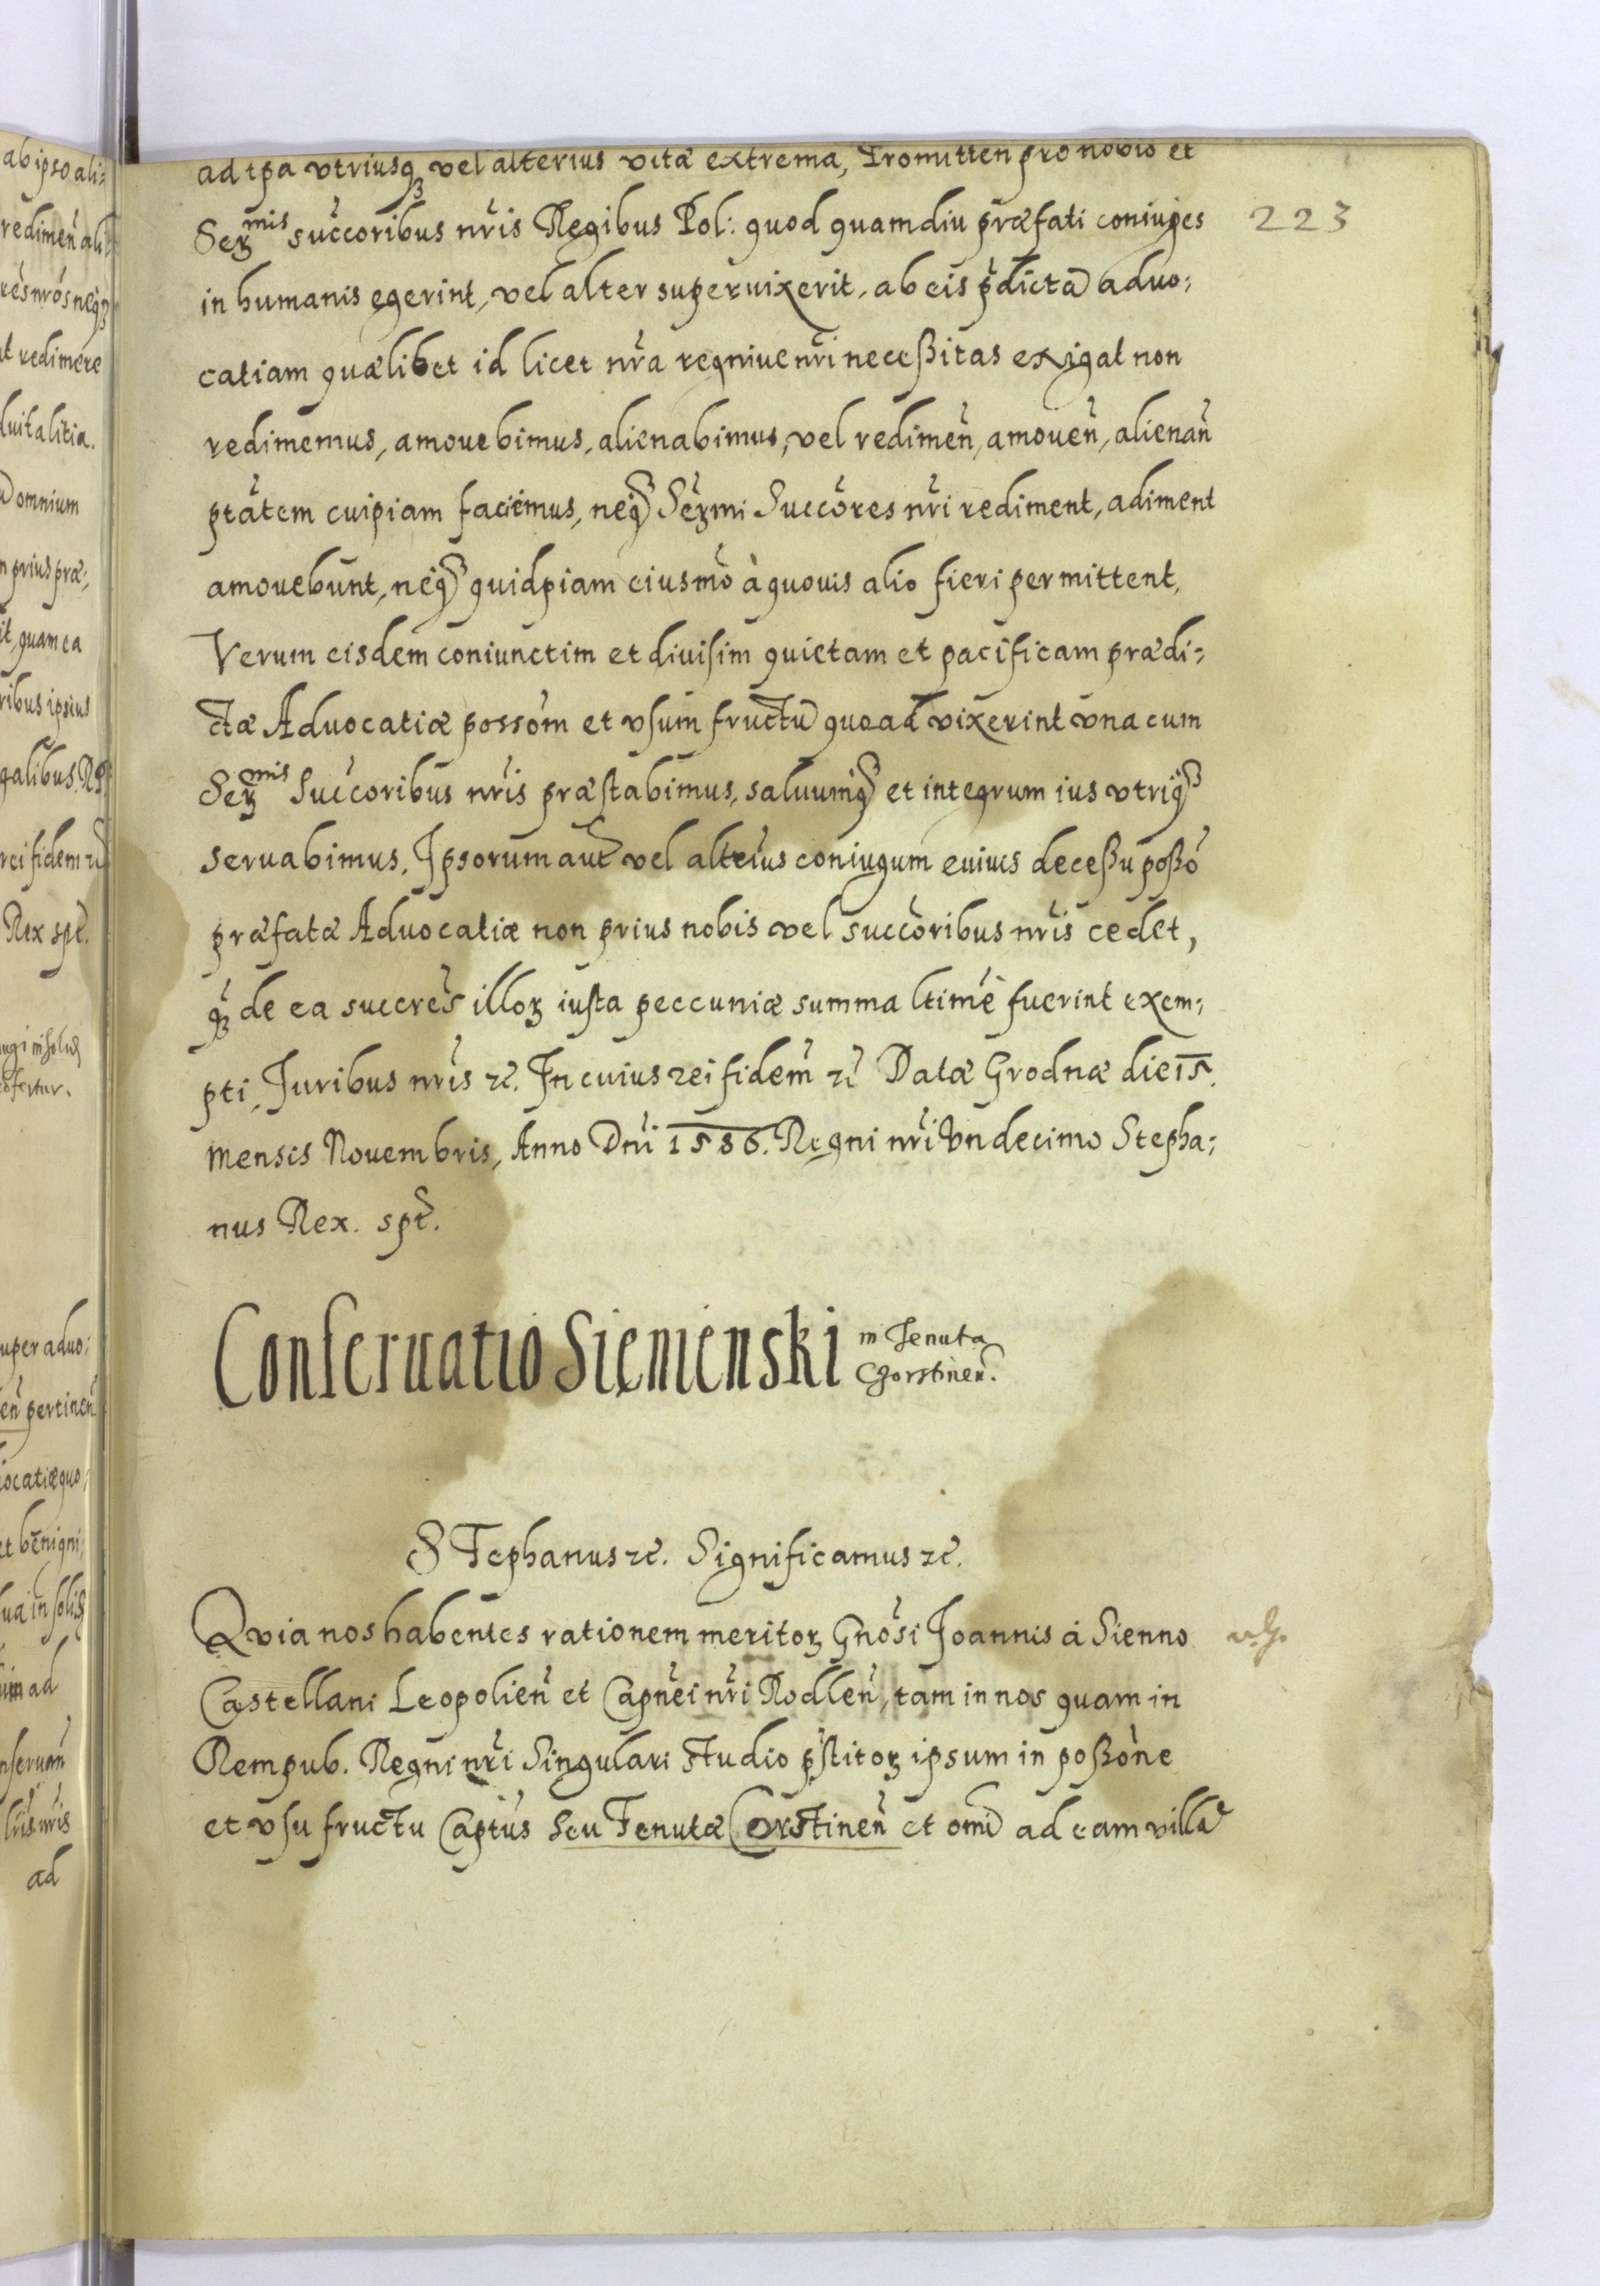 ad tpa vtriusqꝫ vel alterius vitæ extrema, Promitten pro nobis et
Serᵐⁱˢ succoribus nris Regibus Pol: quod quamdiu præfati coniuges
223
in humanis egerint, vel alter superuixerit, ab eis pdicta aduo:
catiam quælibet id licet nra regniue nri neceßitas exigat non
redimemus, amouebimus, alienabimus, vel redimen, amouen, alienan
ptatem cuipiam faciemus, neqꝫ Sermi Succores nri rediment, adiment
amouebunt, neqꝫ quidpiam eiusmo à quouis alio fieri permittent,
Verum eisdem coniunctim et diuisim quietam et pacificam prædi:
ctæ Aduocatiæ possom et vsum fructu quoad vixerint vna cum
Serᵐⁱˢ Succoribus nris præstabimus, saluumqꝫ et integrum ius vtriqꝫ
seruabimus. Ipsorum aut vel alterius coniugum euiuis deceßu poßo
præfatæ Aduocatiæ non prius nobis vel succoribus nris cedet,
qꝫ de ea succres illoꝝ iusta peccuniæ summa ltime fuerint exem:
pti, Juribus nris ꝛc. In cuius rei fidem ꝛc Datæ Grodnæ die 15.
mensis Nouembris, Anno Dni 1586. Regni nri Vndecimo Stepha:
nus Rex. spt.
Conseruatio Sienienski in Tenuta
Chorstinen.
STephanus ꝛc. Significamus ꝛc.
Qvia nos habentes rationem meritoꝝ Gnosi Joannis à Sienno
Castellani Leopolien et Capnei nri Rodlen, tam in nos quam in
Rempub. Regni nri Singulari studio pstitoꝝ ipsum in poßone
et vsu fructu Captus Seu Tenutæ Corstinen et omi ad eam villa